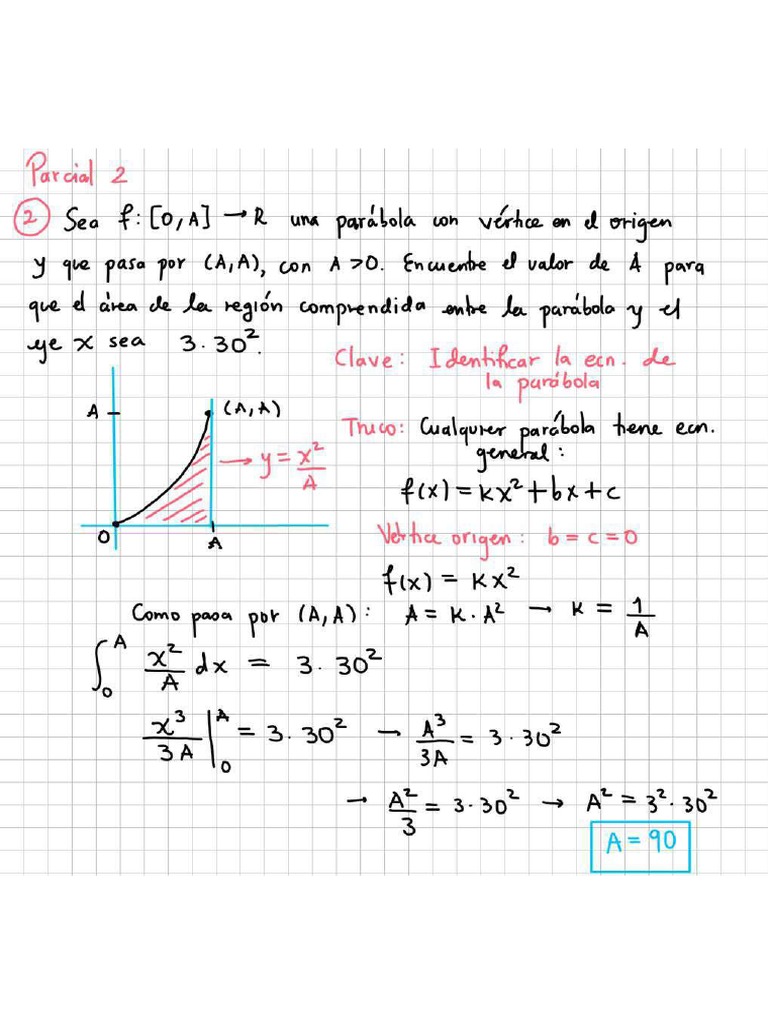 Parcial 2
② Sea f: [0,A] → R una parábola con vértice en el origen
y que pasa por (A,A), con A>0. Encuentre el valor de A para
que el área de la región comprendida entre la parábola y el
eje x sea 3·30².
Clave: Identificar la ecn. de
la parábola
A
(A,A)
→ y = x²/A
0
A
Truco: Cualquier parábola tiene ecn.
general:
f(x) = kx² + bx + c
Vértice origen: b = c = 0
f(x) = kx²
Como pasa por (A,A): A = k·A² → k = 1/A
∫₀ᴬ x²/A dx = 3·30²
x³/3A |₀ᴬ = 3·30² → A³/3A = 3·30²
→ A²/3 = 3·30² → A² = 3²·30²
A = 90